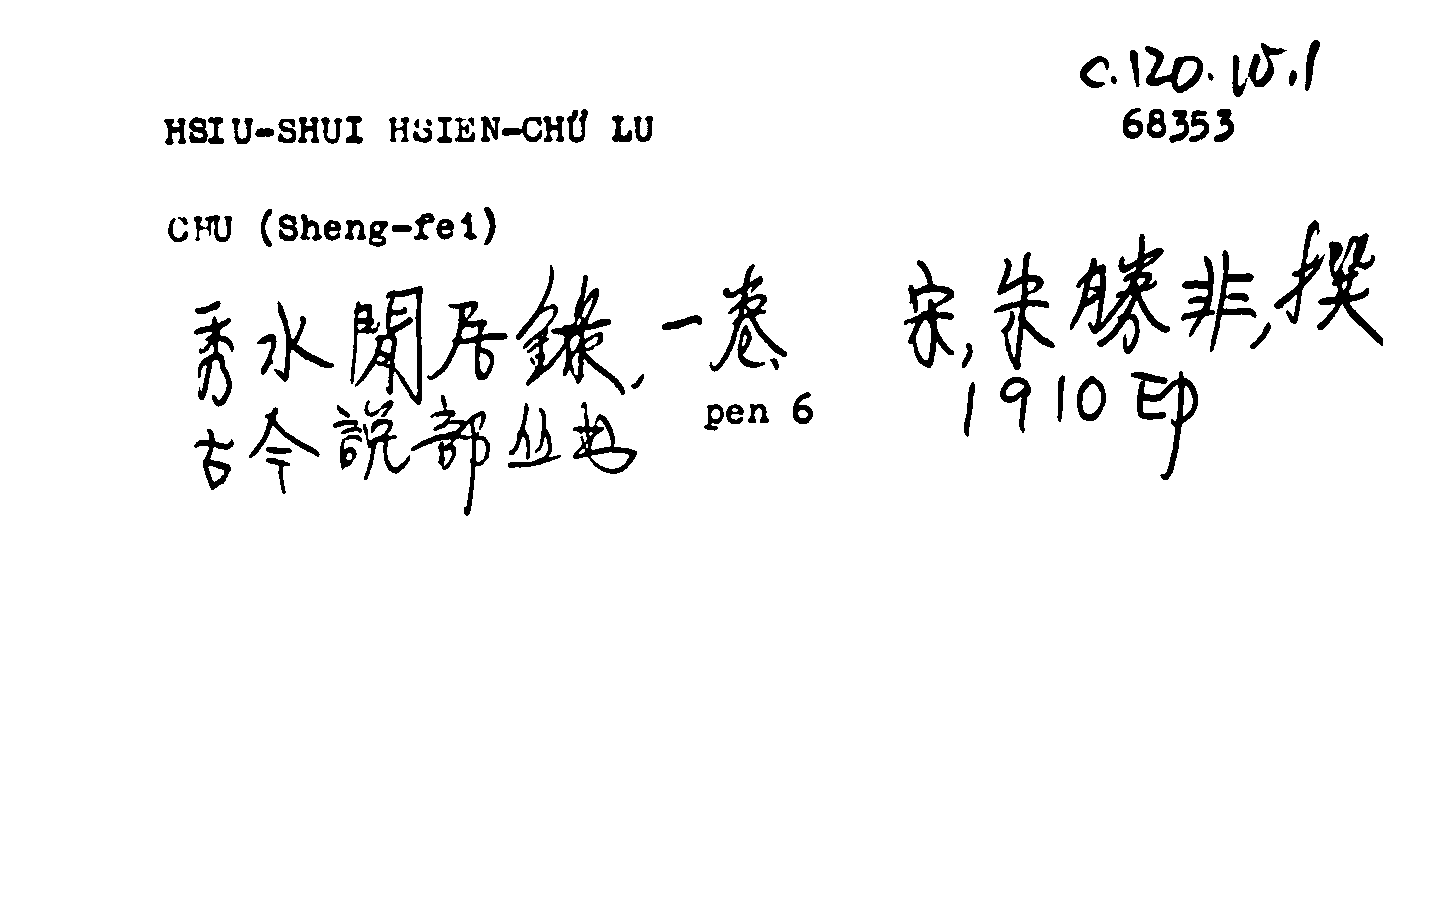 C.120.10.1
68353
HSIU-SHUI HSIEN-CHÜ LU
CHU (Sheng-fei)
秀水閒居錄, 一卷 宋, 朱勝非, 撰
pen 6 1910 印
古今說部丛书